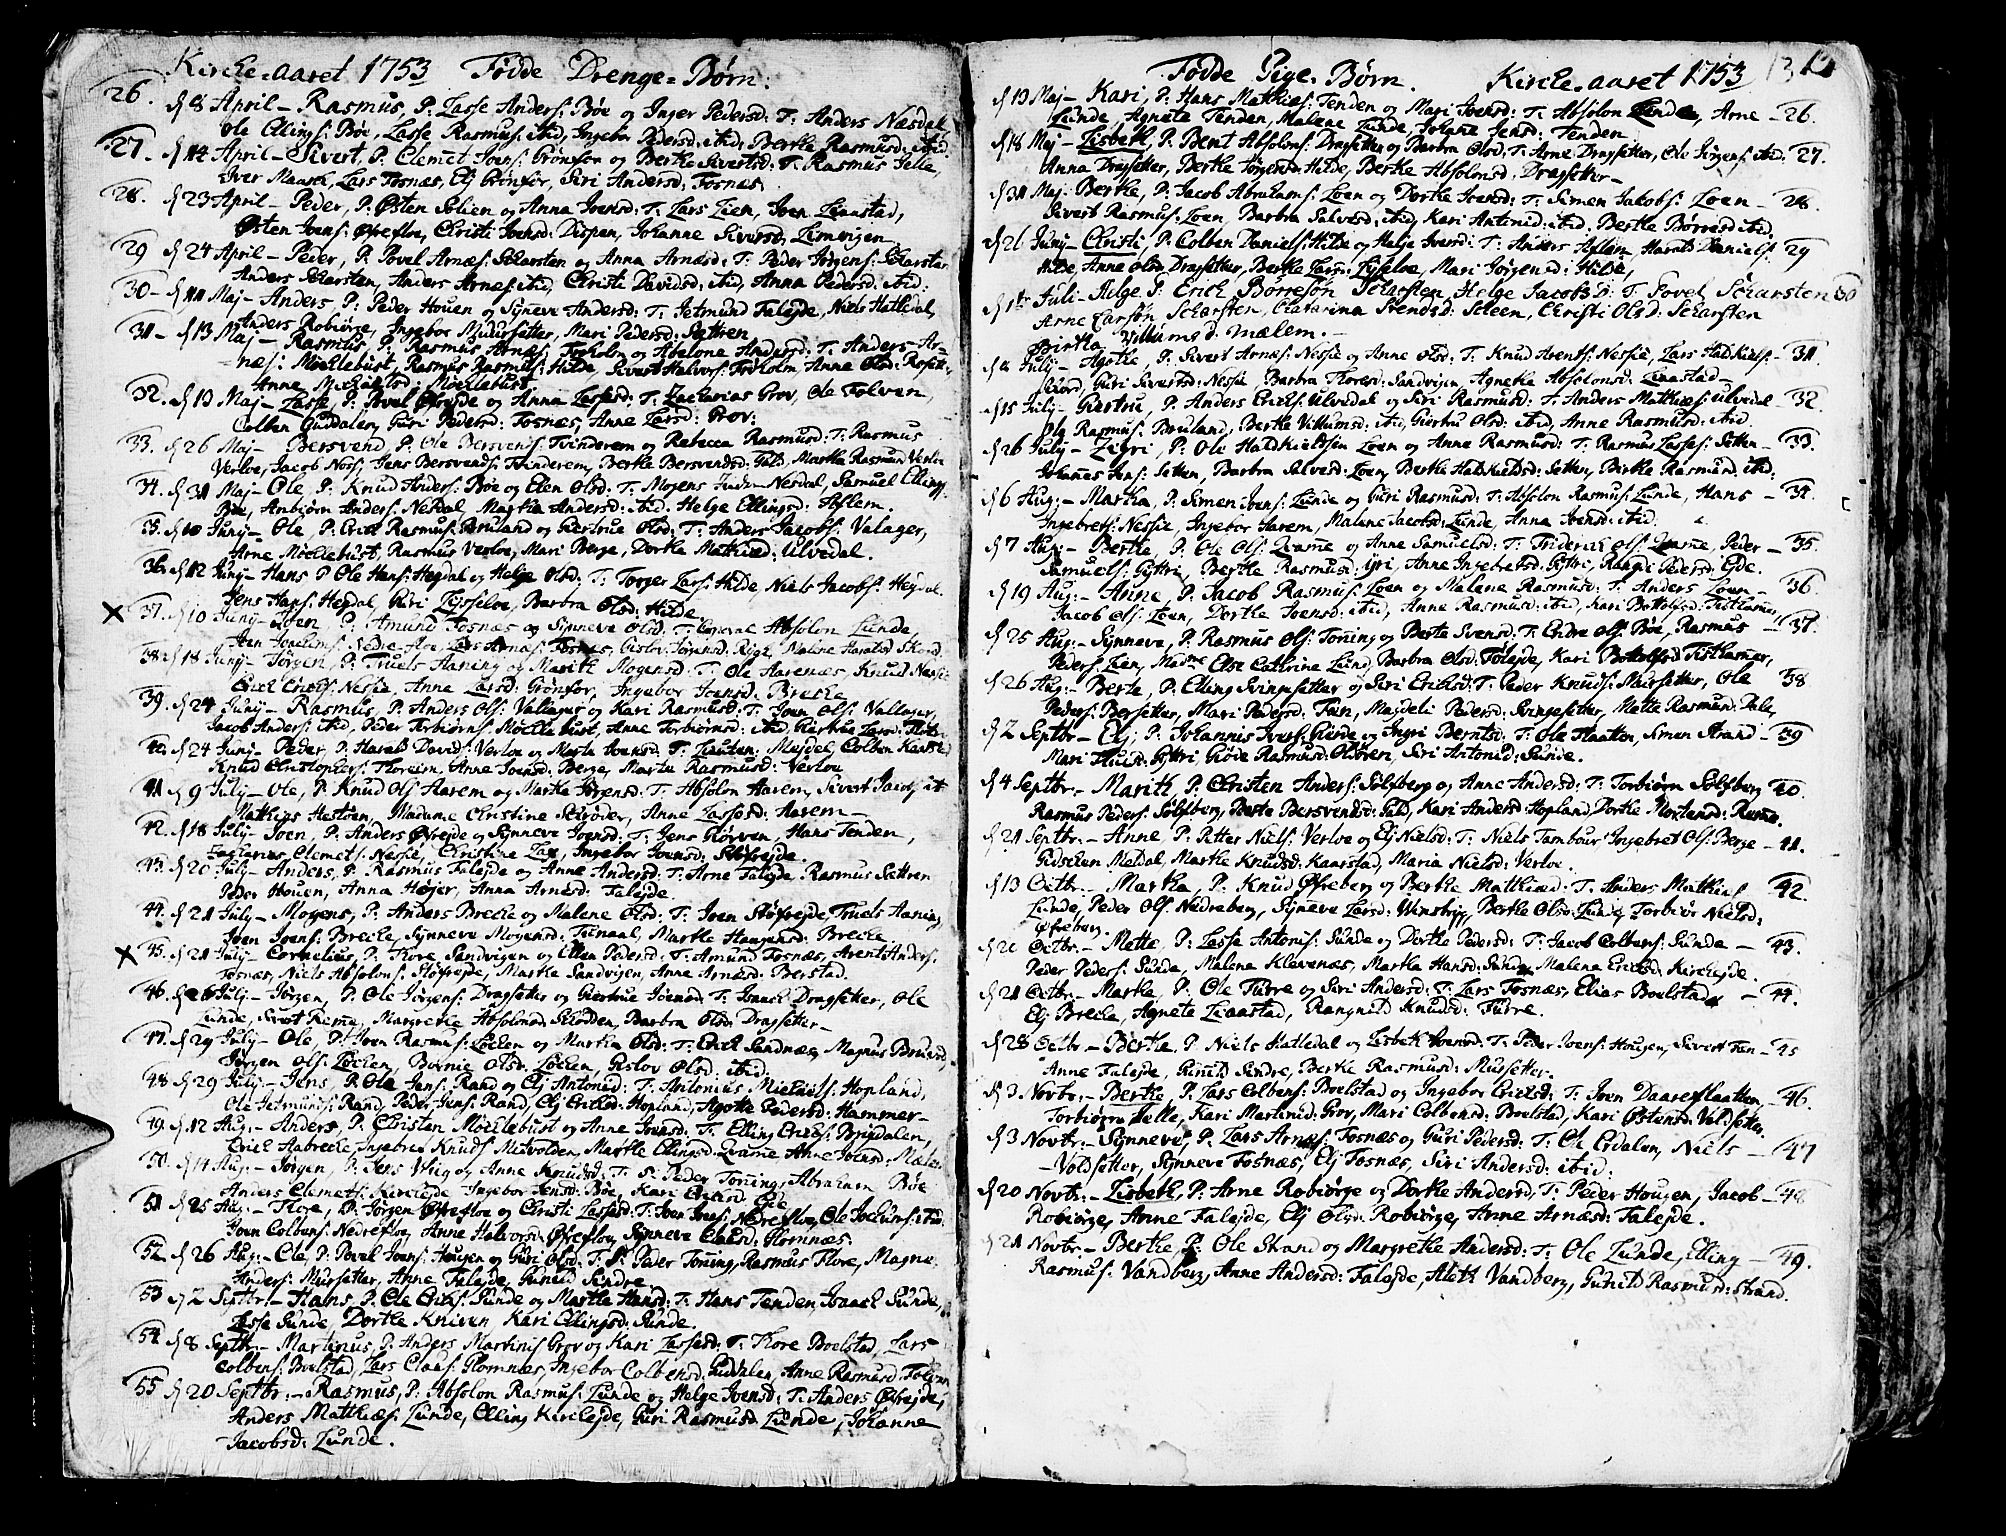 Kirche-aaret 1753 Fødde Drenge-Børn.
26. d 8 April – Rasmus, P. Lasse Anders: Bøe og Inger Pedersd: T. Anders Næsdal
Ole Ellings: Bøe, Lasse Rasmus: ibid, Ingebor Pedersd: ibid, Berthe Rasmusd: ibid
27. d 14 April – Sivert, P. Clemet Joens: Grønfor og Berthe Sivertsd: T. Rasmus Felle,
Iver Maurset, Lars Fosnæs, Elj Grønfor, Siri Andersd: Fosnæs.
28. d 23 April – Peder, P: Østen Solien og Anna Joensd: T: Lars Lien, Joen Leaastad,
Østen Joens: Øfrefloe, Christi Joensd: Dispen, Johanne Siversd: Lemvigen
29 d 24 April – Peder, P: Povel Arnæs: Scharsten og Anna Arnæsd: T: Peder Jørgens: Scharsten
Anders Scharsten, Anders Arnæs: ibid, Christi Davidsd: ibid, Anna Pedersd: ibid:
30 – d 11 Maj – Anders P: Peder Houen og Synneve Andersd: T: Jetmund Falejde, Niels Hatledal,
Anders Robiørge, Ingebor Mursetter, Mari Pedersd: Sættren
31 – d 13 Maj – Rasmus, P: Rasmus Arnæs: Foxholm og Abelone Andersd: T: Anders Ar-
næs: Möchlebust, Rasmus Rasmus: Hilde, Sivert Halvors: Foxholm, Anne Olsd: Rosett,
Anne Michaelsd: Möchlebust.
32. d 13 Maj – Lasse, P: Povel Øfrejde og Anna Lassesd: T: Zacharias Grov, Ole Folven,
Colben Guddalen, Guri Pedersd: Fosnæs, Anne Larsd: Grov:
33. d 26 Maj – Bersvend P: Ole Bersvends: Tvinderem og Rebecca Rasmusd: T: Rasmus
Verloe, Jacob Noss, Jens Bersvends: Tvinderem, Berthe Bersvendsd: Fald, Martha Rasmusd Verloe
34. d 31 Maj – Ole, P: Knud Anders: Bøe og Elen Olsd: T: Mogens Nesdal, Samuel Ellings:
Bøe, Anbiørn Anders: Nesdal, Martha Andersd: ibid. Helge Ellingsd: Aaflem.
35. d 10 Juny – Ole, P: Erich Rasmus: Bruland og Giertrue Olsd: T: Anders Jacobs: Valager,
Arne Möchlebust, Rasmus Verloe, Mari Berge, Dorthe Mathisd: Ulvedal.
36. d 12 Juny – Hans P Ole Hans: Hegdal og Helge Olsd: T: Torger Lars: Hilde, Niels Jacobs: Hegdal.
Jens Hans: Hegdal, Guri Fysseloe, Barbra Olsd: Hilde
× 37. d 10 Juny – Joen P. Amund Fosnæs og Synneve Olsd: T: Corporal Absolon Lunde
Joen Joachims: Nedre-Floe Lars Arnæs: Fosnæs, Gislov Jørgensd: Rige, Malene Haraldsd
38. d 18 Juny – Jørgen, P: Truels Haning og Marith Mogensd: T: Ole Harenæs, Knud Nessie
Erich Erichs: Nessie, Anne Larsd: Grønfor, Ingebor Joensd: Breche
39. d 24 Juny – Rasmus, P: Anders Ols: Vallager og Kari Rasmusd: T: Joen Ols: Vallager,
Jacob Anders: ibid, Peder Torbiørns: Möchlebust, Anne Torbiørnsd: ibid, Giertrue Larsd:
40. d 24 Juny – Peder, P: Harald Davids: Verloe og Marta Joensd: T: Lieuten: Mejdel, Colben Kaarstad
Knud Christophers: Floreim, Anne Joensd: Berge, Marta Rasmusd: Verloe
41 d 9 July – Ole, P: Knud Ols: Harem og Martha Jørgensd: T: Absolon Harem, Sivert
Mathias Hestøen, Madame Christine Schrøder, Anne Lassesd: Harem –
42. d 18 July – Joen, P: Anders Øfrejde og Synneve Joensd: T: Jens Grøvren, Hans Tenden,
Zacharias Clemets: Nessie, Christine Lie, Ingebor Joensd: Støfrejde.
43. d 20 July – Anders, P Rasmus Falejde og Anne Andersd: T: Arne Falejde, Rasmus Sættren
Peder Houen, Anna Højer, Anna Arnesd: Falejde
44. d 21 July – Mogens, P: Anders Breche og Malene Olsd: T: Joen Støfrejde, Truels Haning
Joen Joens: Breche, Synneve Mogensd: Tisnaal, Marthe Haugensd: Breche
× 45. d 21 July – Cornelius, P: Thore Sandvigen og Ellen Pedersd: T: Amund Fosnæs, Arent Anders:
Fosnæs, Niels Absolons: Støfrejde, Martha Sandvigen, Anne Arnesd: Berstad.
46. d 26 July – Jørgen, P: Ole Jørgens: Dragsetter og Giertrue Joensd: T: Isaach Dragsetter, Ole
Lunde, Sivert Remme, Margrethe Absolonsd: Schodden, Barbra Olsd: Dragsetter –
47. d 29 July – Ole, P: Iven Rasmus: Løchen og Martha Olsd: T: Erich Sandnæs, Magnus Bruland,
Jørgen Ols: Løchen, Bovnie Olsd: Løchen, Geslov Olsd: ibid:
48 d 29 July – Jens, P: Ole Jens: Rand og Elj Antonisd: T: Antonius Michels: Hopland,
Ole Jetmunds: Rand, Peder Jens: Rand, Elj Erichsd: Hopland, Agotte Pedersd: Hammer –
49. d 12 Aug: – Anders, P. Christen Möchlebust og Anne Joensd: T: Elling Erichs: Brigdalen,
Erich Aabreche, Ingebret Knuds: Melvolden, Marthe Ellingsd: Qvamme Anne Joensd: Mælen
50. d 14 Aug: – Jørgen, P: Jens Wiig og Anne Knudsd: T: S: Peder Tonning, Abraham Bøe
Anders Clemets: Kirchejde Ingebor Jensd: Bøe, Kari Erichsd: Ejde
51 d 25 Aug: – Thore, P: Jørgen Øfrefloe og Christi Lassesd: T: Joen Joens: Nedrefloe, Ole Joachims: ibid
Joen Colbens: Nedrefloe, Anne Halvorsd: Øfrefloe, Synneve Clausd: Glomnæs.
52. d 26 Aug: – Ole, P: Povel Joens: Hougen og Guri Olsd: T: S: Peder Tonning, Rasmus Flore, Magne
Anders: Mursetter, Anne Falejde, Gunild Sindre
53 d 2 Septbr: – Hans, P. Ole Erichs: Sunde og Marthe Hansd: T: Hans Tenden, Isaach Sunde,
Lasse Sunde Dorthe Kniven Kari Ellingsd: Sunde.
54 d 8 Septbr: – Martinus, P. Anders Martinus: Grov og Kari Lassesd: T: Thore Boelstad, Lars
Colbens: Boelstad, Lars Claus: Glomnæs, Ingebor Colbensd: Guddalen, Anne Rasmusd: Folven
55 d 20 Septbr: – Rasmus, P: Absolon Rasmus: Lunde og Helge Joensd: T: Anders Øfrejde,
Anders Matthias: Lunde, Elling Kirchejde, Guri Rasmusd: Lunde, Johanne
Jacobsd: Lunde.
Fødde Pige-Børn. Kirche-aaret 1753 13 12
d 13 Maj – Kari, P: Hans Mathias: Tenden og Mari Joensd: T: Absolon Lunde, Arne – 26.
Lunde, Agnete Tenden, Malene Lunde, Johane Jensd: Tenden
d 18 Maj – Lisbeth, P. Bent Absolons: Dragsetter og Barbra Olsd: T: Arne Dragsetter, Ole Jørgens: ibid. 27.
Anna Dragsetter, Berthe Jørgensd: Hilde, Berthe Absolonsd: Dragsetter –
d 31 Maj – Berthe, P: Jacob Abrahams: Loen og Dorthe Joensd: T: Simen Jacobs: Loen – 28.
Sivert Rasmus: Loen, Barbra Salvesd: ibid, Kari Antonisd: ibid, Berthe Børresd: ibid.
d 21 Juny – Christi, P. Colben Daniels: Hilde og Helje Iversd: T: Anders Aaflem, Harald Daniels: 29
Hilde, Anne Olsd: Dragsetter, Berthe Larsd: Fysseloe, Mari Jørgensd: Hilde,
d 1te Juli – Helge P: Erich Børreson Scharsten, Helge Jacobsd: T Povel Scharsten 30
Arne Larson Scharsten, Chatarina Svendsd: Scheen, Christi Olsd: Scharsten
Birtha Villumsd. Mælem. –
d 8 July – Agothe, P: Sivert Arnæs: Nessie og Anne Olsd: T: Knud Arents: Nessie, Lars Haldkiels: – 31
Guri Sivertsd: Nessie, Barbra Thoresd: Sandvigen, Agnetha Absolonsd: Leaastad –
d 15 July – Giertru, P. Anders Erichs: Ulvedal og Siri Rasmusd: T: Anders Mathias: Ulvedal – 32.
Ole Rasmus: Bruland, Berthe Villumsd: ibid, Giertru Olsd: ibid, Anne Rasmusd: ibid.
d 26 July – Zigri, P: Ole Haldkieldsen Loen og Anne Rasmusd: T: Rasmus Lasses: Setten – 33.
Johannes Jens: Setten, Barbra Salvesd: Loen, Berthe Haldkieldsd: Setten, Birthe Rasmusd: ibid:
d 6 Aug: – Martha, P: Simen Ivers: Lunde og Guri Rasmusd: T: Absolon Rasmus: Lunde, Hans – 34.
Ingebrets: Nessie, Ingebor Harem, Malene Jacobsd: Lunde, Anna Joensd: ibid.
d 7 Aug: – Berthe, P: Ole Ols: Qvamme og Anne Samuelsd: T: Friderich Ols: Qvamme, Peder – 35.
Samuels: Gyttri, Berthe Rasmusd: Yri, Anne Ingebretsd: Gyttri, Rangdi Pedersd: Ejde.
d 19 Aug: – Anne, P: Jacob Rasmus: Loen og Malene Rasmusd: T: Anders Loen – 36
Jacob Ols: Loen, Dorthe Joensd: ibid, Anne Rasmusd: ibid, Kari Bottolfsd: Tisthammer,
d 25 Aug: – Synneve, P. Rasmus Ols: Tonning og Berte Svensd: T: Endre Ols: Bøe, Rasmus – 37.
Peders: Lien, Madme Else Cathrine Lund, Barbra Olsd: Falejde, Kari Bottolfsd: Tisthamer,
d 26 Aug: – Berte, P: Elling Svingesetter og Siri Erichsd: T: Peder Knuds: Mursetter, Ole 38
Peders: Bersetter, Mari Pedersd: Faen, Magdeli Pedersd: Svingesetter, Mette Rasmusd: Dale,
d 2 Septbr – Elj, P: Johannis Ivers: Gunde og Ingri Berntsd: T: Ole Flaatten, Simen Strand – 39
Mari Thuesd: Gyttri, Gjøde Rasmusd: Oldøren, Siri Antonisd: Sunde.
d 4 Septbr. – Marith, P. Christen Anders: Solfberg og Anne Andersd: T: Torbiørn Solfberg 40.
Rasmus Peders: Sølfberg, Berte Bersvendsd: Fald, Kari Andersd: Hopland, Dorthe Mortensd: Remme.
d 21 Septbr. – Anne, P: Petter Niels: Verloe og Elj Nielsd: T: Niels Tambour Ingebret Ols: Berge – 41.
Gidschen Meldal, Marthe Knudsd: Kaarstad, Maria Nielsd: Verloe.
d 13 Octbr. – Martha, P: Knud Øfreberg og Berthe Matthiasd: T: Anders Mathias: 42.
Lunde, Peder Ols: Nedreberg, Synneve Larsd: Vinstrup, Berthe Olsd: Lunde, Torbiør Nielsd:
Øfreberg.
d 20 Octbr. – Mette, P: Lasse Antonis: Sunde og Dorthe Pedersd: T: Jacob Colbens: Sunde – 43.
Peder Peders: Sunde, Malena Klevenæs, Martha Hansd: Sunde, Malena Erichsd: Kirchejde.
d 21 Octbr. – Marthe, P: Ole Furre og Siri Andersd: T: Lars Fosnæs, Elias Boelstad – 44.
Elj Breche, Agnete Leaastad, Rangnild Knudsd: Furre.
d 28 Octbr. – Berthe, P. Niels Hatledal og Lisbeth Joensd: T: Peder Joens: Hougen, Sivert Faen – 45
Anne Falejde, Gunild Sindre, Berthe Rasmusd: Mursetter.
d 3. Novbr. – Berthe, P: Lars Colbens: Boelstad og Ingebor Erichsd: T: Joen Daareflaatten – 46.
Torbiørn Felle, Kari Martinisd: Grov, Mari Colbensd: Boelstad, Kari Østensd: Voldsetter.
d 3 Novbr. – Synneve, P. Lars Arnæs: Fosnæs og Guri Pedersd: T: Ole Erdalen, Niels – 47
– Voldsetter, Synneve Fosnæs, Elj Fosnæs, Siri Andersd: ibid:
d 20 Novbr. – Lisbeth, P: Arne Robiørge og Dorthe Andersd: T: Peder Hougen, Jacob – 48.
Robiørge, Anne Falejde, Elj Olsd: Robiørge, Anne Arnæsd: Falejde.
d 21 Novbr. – Berthe, P: Ole Strand og Margrethe Andersd: T: Ole Lunde, Elling – 49.
Rasmus: Vandberg, Anne Andersd: Falejde, Aleth Vandberg, Gunild Rasmusd: Strand.